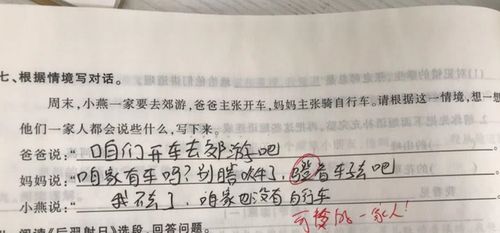 七、根据情境写对话。
周末,小燕一家要去郊游,爸爸主张开车,妈妈主张骑自行车。请根据这一情境,想一想
他们一家人都会说些什么,写下来。
爸爸说:“咱们开车去郊游吧
妈妈说:“咱家有车吗?别瞎吹牛了,骑着车走吧
小燕说:“我去了,咱家也没有自行车
可怜的一家人!
八、阅读《后羿射日》选段,回答问题。